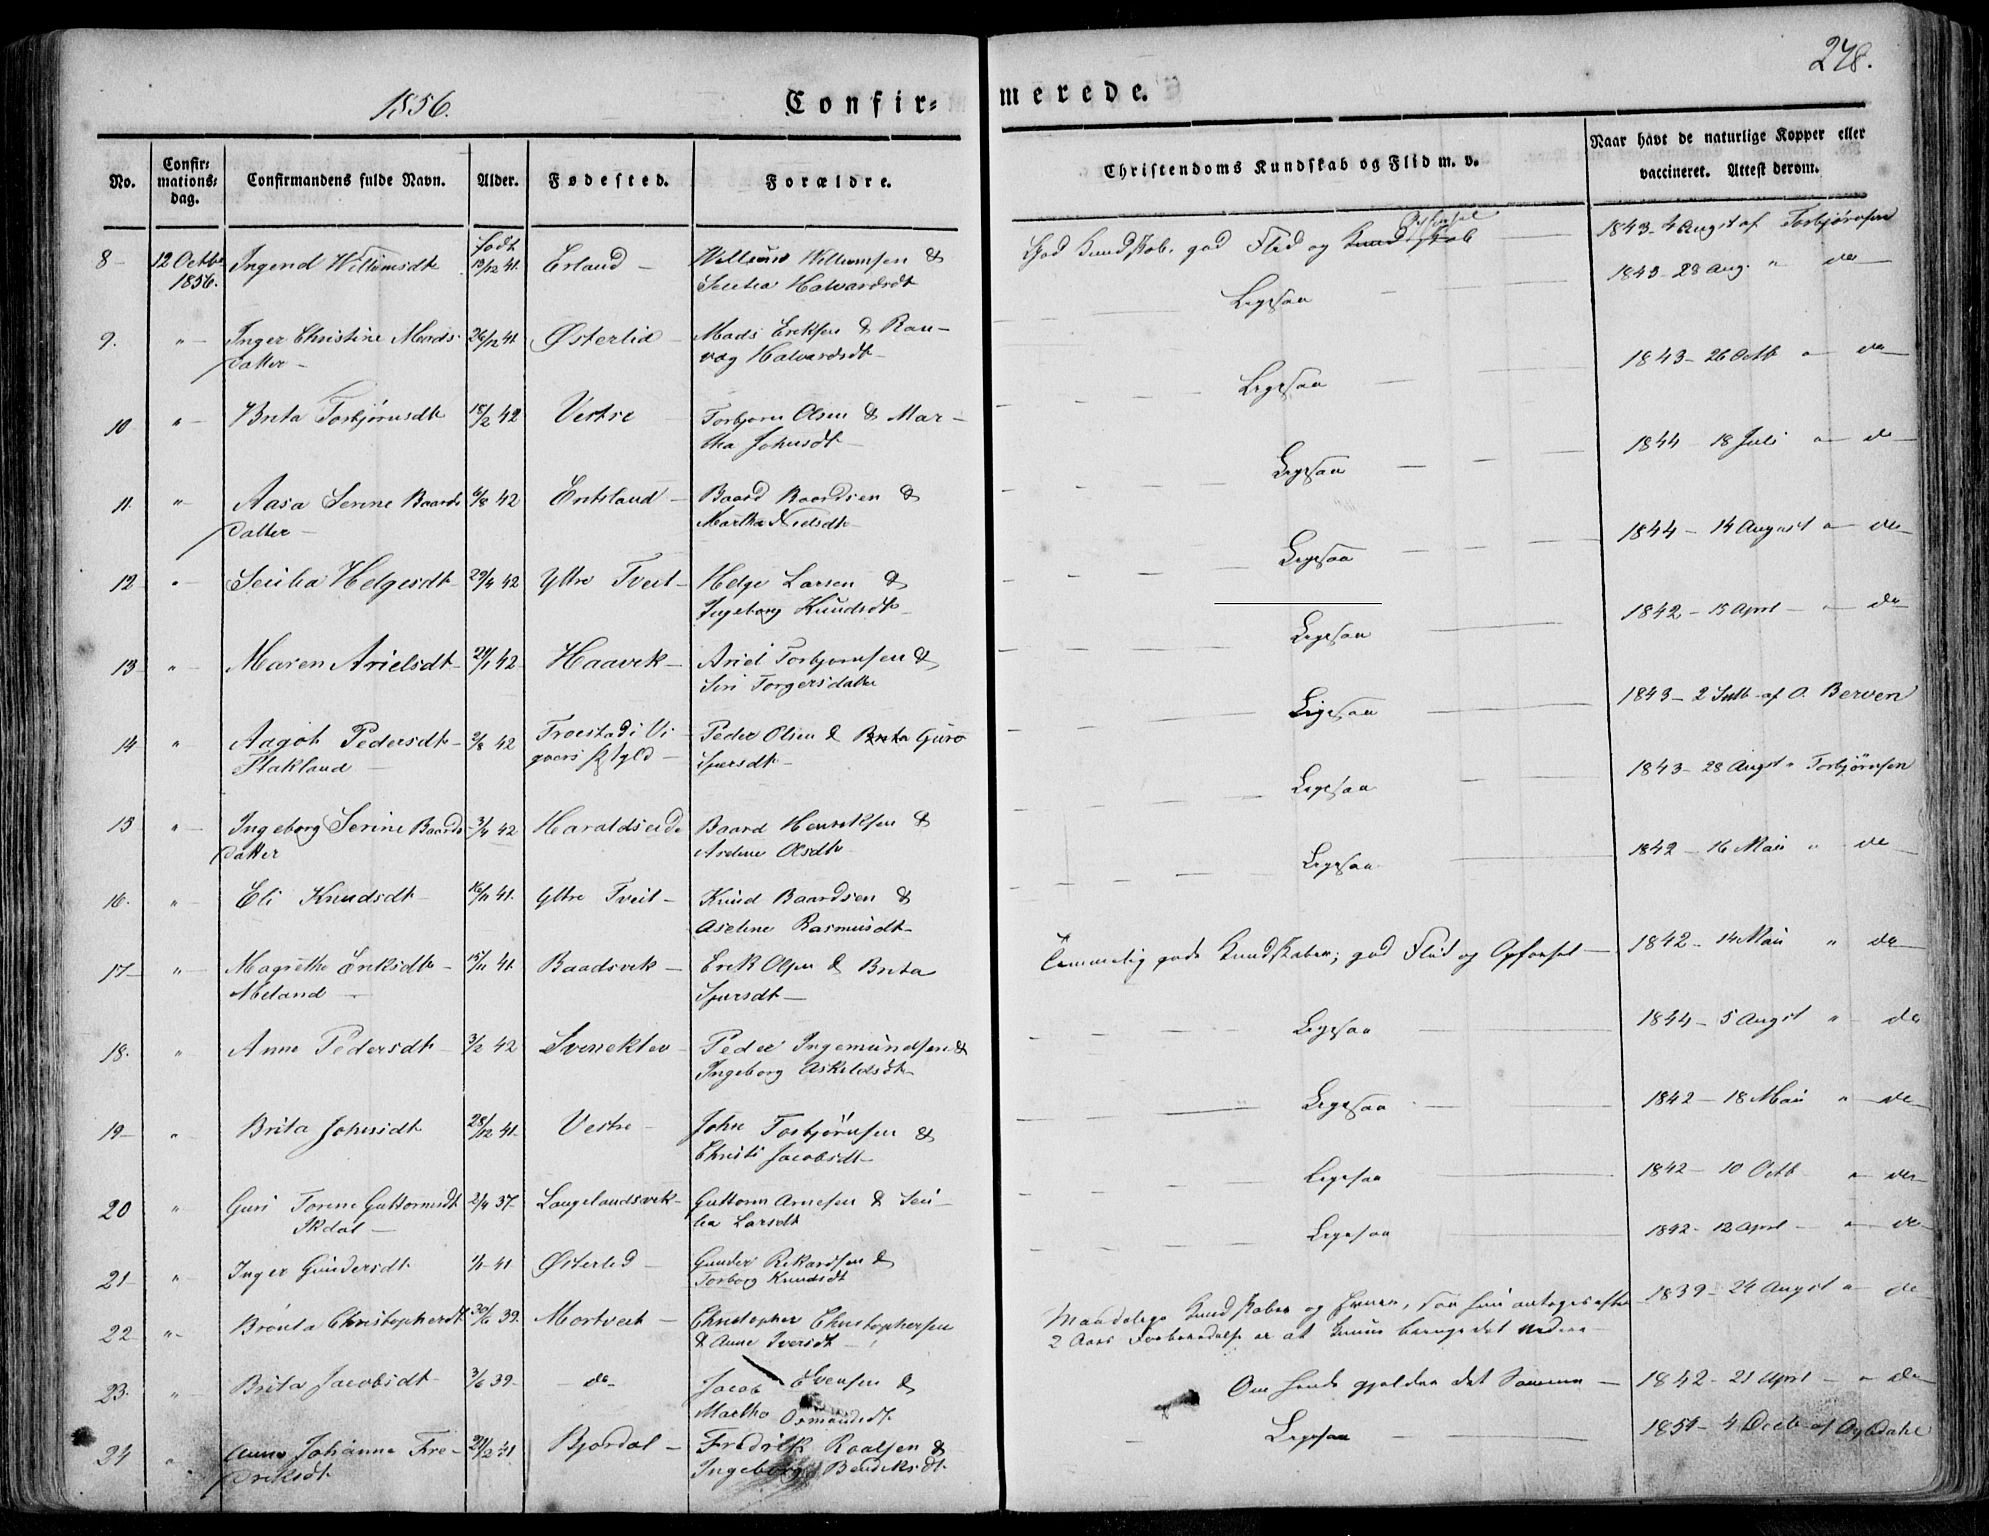 248.
1856.
Confir=
merede.
No.
Confir=
mations=
dag.
Confirmandens fulde Navn.
Alder.
Fødested.
Forældre.
Christendoms Kundskab og Flid m. v.
Naar havt de naturlige Kopper eller
vaccineret. Attest derom.
8 12 Octbr 1856. Ingend Willumsdt født 19/12 41. Erland Willum Willumsen &
Secilia Halvardsdt
God Kundskab, god Flid og Kundskab 1843 - 4 Augst af Torbjørnsen
9. " Inger Christine Mads
datter 26/12 41 Østerlid Mads Eriksen & Ran-
vag Halvardsdt
Ligesaa 1843 - 28 Aug. " do
10 " Brita Torbjørnsdt 18/2 42 Vestre Torbjørn Olsen & Mar-
tha Johnsdt
Ligesaa 1843 - 26 Octb " do
11. " Aasa Serine Baards
datter 6/8 42 Baard Baardsen &
Martha Nielsdt
Ligesaa 1844 - 18 Juli " do
12 " Secilia Helgesdt 29/4 42 Yttre Tveit Helge Larsen &
Ingeborg Knudsdt
Ligesaa 1844 - 14 August " do
13 " Maren Arielsdt 24/1 42 Haavik Ariel Torbjørnsen &
Siri Torgersdatter
Ligesaa 1842 - 15 Aprl " do
14 " Aagot Pedersdt
Flakland 2/8 42 Peder Olsen & Brita Guro
Sjursdt
Ligesaa 1843 - 2 af O. Berven
15 " Ingeborg Serine Baards
datter 3/4 42 Haraldseide Baard Henriksen &
Olsdt
Ligesaa 1843 - 28 Augst " Torbjørnsen
16. " Eli Knudsdt 16/11 41. Yttre Tveit Knud Baardsen &
Aselene Rasmusdt
Ligesaa 1842 - 16 Mai " do
17 " Magrethe Eriksdt
Meland 15/11 41. Baadsvik Erik Olsen & Brita
Sjursdt
Temmelig gode Kundskaber; god Flid og Opførsel 1842 - 14 Mai " do
18. " Anne Pedersdt 3/2 42 Peder Ingemundsen &
Ingeborg Askildsdt
Ligesaa 1844 - 5 Augst " do
19 " Brita Johnsdt 28/12 41. Vestre John Torbjørnsen &
Christi Jacobsdt
Ligesaa 1842 - 18 Mai " do
20 " Guri Torine Guttormsdt
2/4 37. Langelandsvik Guttorm Arnesen & Seci-
lia Larsdt
Ligesaa 1842 - 10 Octb " do
21 " Inger Gundersdt 1/1 41 Østerlid Gunder Rikardsen &
Torborg Knudsdt
Ligesaa 1842 - 12 Aprl " do
22 " Christophersdt 30/6 39. Mortveit Christopher Christophersen
& Anne Iversdt
Maadelige Kundskaber og saa hun antages efter
2 Aars Forberedelse at kunne bringe det videre
1839 - 24 Augst " do
23. " Brita Jacobsdt 3/6 39 do Jacob Evensen &
Martha Osmundsdt
Om hende gjælder det Samme 1842 - 21 Aprl " do
24 " Anne Johanne Fre-
driksdt 24/2 41 Bjordal Fredrik Roalsen &
Ingeborg Bendiksdt
Ligesaa 1854 - 4 Decb af